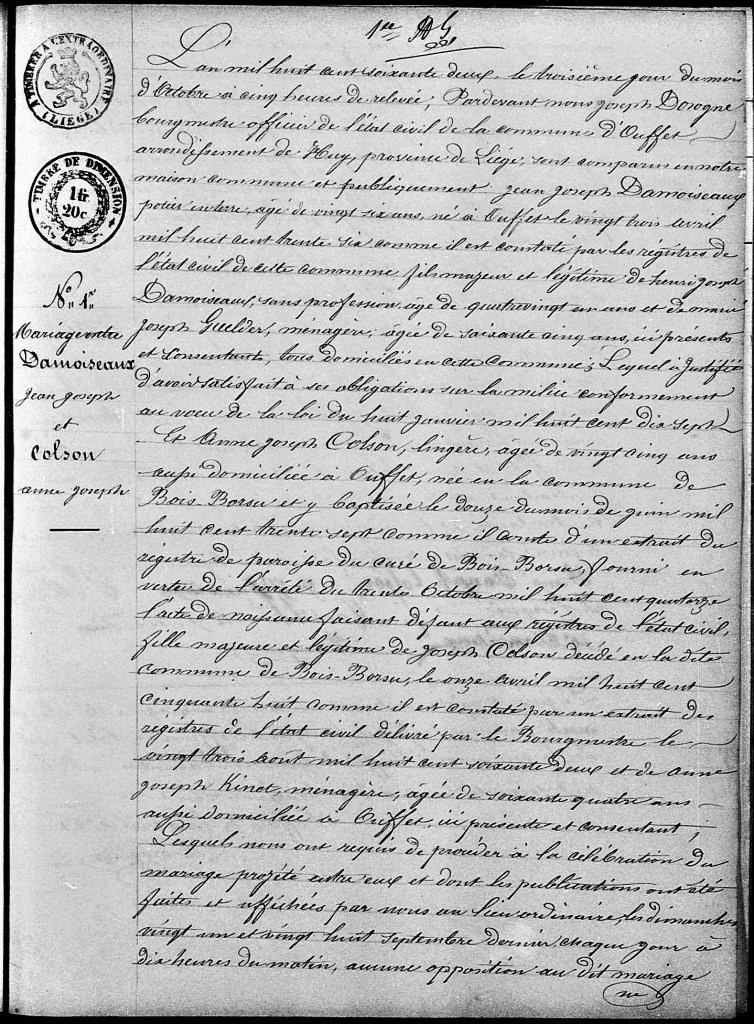 1er
A TIMBRER A L'EXTRAORDINAIRE
(LIÉGE)
TIMBRE DE DIMENSION
1 fr
20c
N° 1er
Mariage entre
Damoiseaux
jean joseph
et
Colson
anne joseph
L'an mil huit cent soixante deux le troisième jour du mois
d'Octobre à cinq heures de relevée; Pardevant nous joseph Dosogne
bourgmestre officier de l'état civil de la commune d'Ouffet
arrondissement de Huy, province de Liége, sont comparus en notre
maison commune et publiquement jean joseph Damoiseaux
potier en terre, âgé de vingt six ans, né à Ouffet le vingt trois avril
mil huit cent trente six comme il est constaté par les régistres de
l'état civil de cette commune fils majeur et légitime de henri joseph
Damoiseaux, sans profession, âgé de quatrevingt un ans et de marie
joseph Guelder, ménagère, âgée de soixante cinq ans, ici présents
et consentants, tous domiciliés en cette commune; Lequel à justifié
d'avoir satisfait à ses obligations sur la milice conformement
au vœu de la loi du huit janvier mil huit cent dix sept
Et Anne joseph Colson, lingère, âgée de vingt cinq ans
aussi domiciliée à Ouffet, née en la commune de
Bois-Borsu et y baptisée le douze du mois de juin mil
huit cent trente sept comme il conste d'un extrait du
registre de paroisse du curé de Bois-Borsu, fourni en
vertu de l'arrêté du trente Octobre mil huit cent quatorze
l'acte de naissance faisant défaut aux régistres de l'état civil,
fille majeure et légitime de joseph Colson décédé en la dite
commune de Bois-Borsu, le onze avril mil huit cent
cinquante huit comme il est constaté par un extrait des
régistres de l'état civil délivré par le Bourgmestre le
vingt trois aout mil huit cent soixante deux et de anne
joseph Kinet, ménagère, âgée de soixante quatre ans
aussi domiciliée à Ouffet, ici présente et consentant;
Lesquels nous ont requis de procéder à la célébration du
mariage projété entre eux et dont les publications ont été
faites et affichées par nous au lieu ordinaire, les dimanches
vingt un et vingt huit septembre dernier, chaque jour à
dix heures du matin, aucune opposition au dit mariage
ne